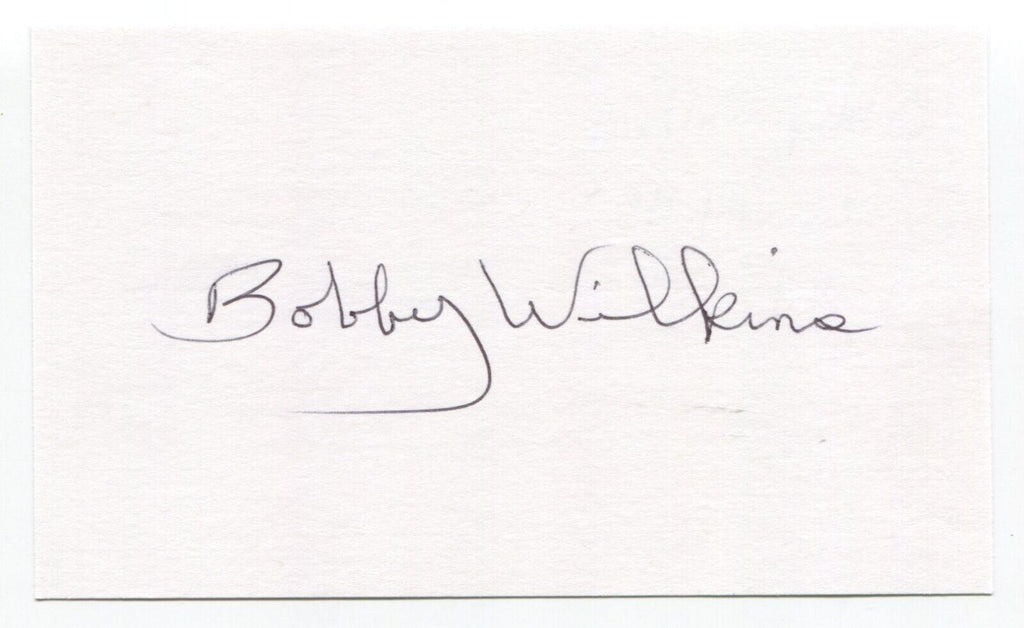 Bobby Wilkins